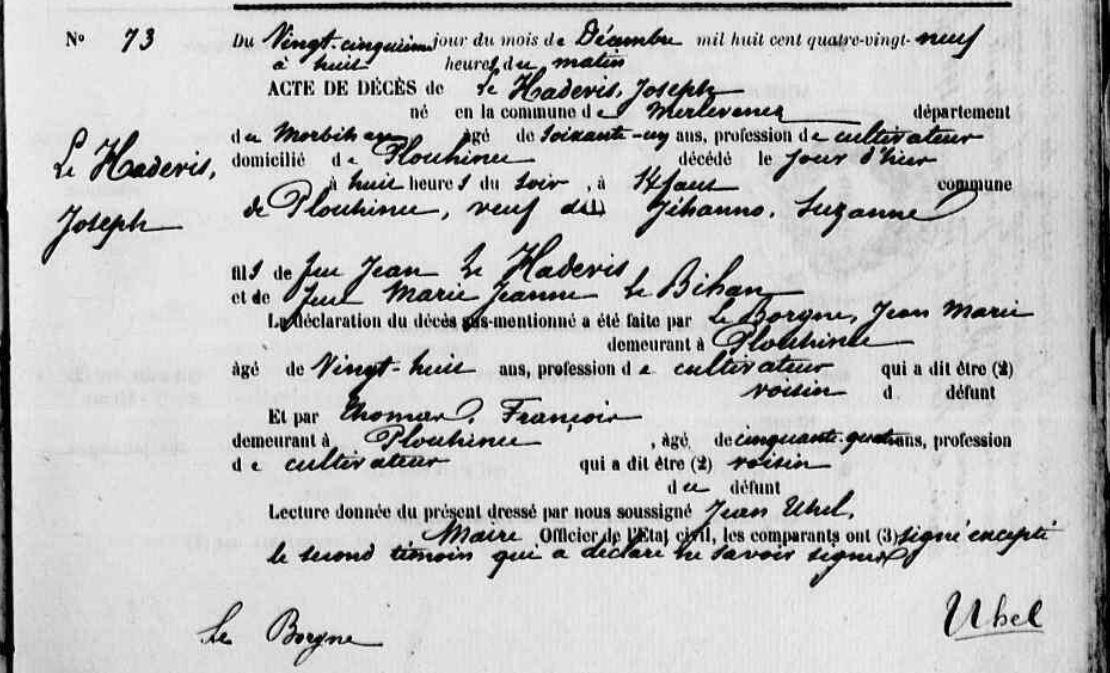 N° 73 Du Vingt-cinquième jour du mois de Décembre mil huit cent quatre-vingt-neuf
à huit heures du matin
ACTE DE DÉCÈS de Le Haderis, Joseph
né en la commune de Merlevenez département
du Morbihan âgé de soixante-un ans, profession de cultivateur
Le Haderis,
Joseph
domicilié de Plouhinec décédé le jour d'hier
à huit heures du soir, à commune
de Plouhinec, veuf de Jéhanno, Suzanne
fils de feu Jean Le Haderis
et de feue Marie Jeanne Le Bihan
La déclaration du décès sus-mentionné a été faite par Le Borgne, Jean Marie
demeurant à Plouhinec
âgé de Vingt-huit ans, profession de cultivateur qui a dit être (2)
voisin d défunt
Et par Thomas, François
demeurant à Plouhinec, âgé de cinquante-quatre ans, profession
de cultivateur qui a dit être (2) voisin
du défunt
Lecture donnée du présent dressé par nous soussigné Jean Uhel,
Maire Officier de l'Etat civil, les comparants ont (3) signé excepté
le second témoin qui a déclaré ne savoir signer
Le Borgne Uhel